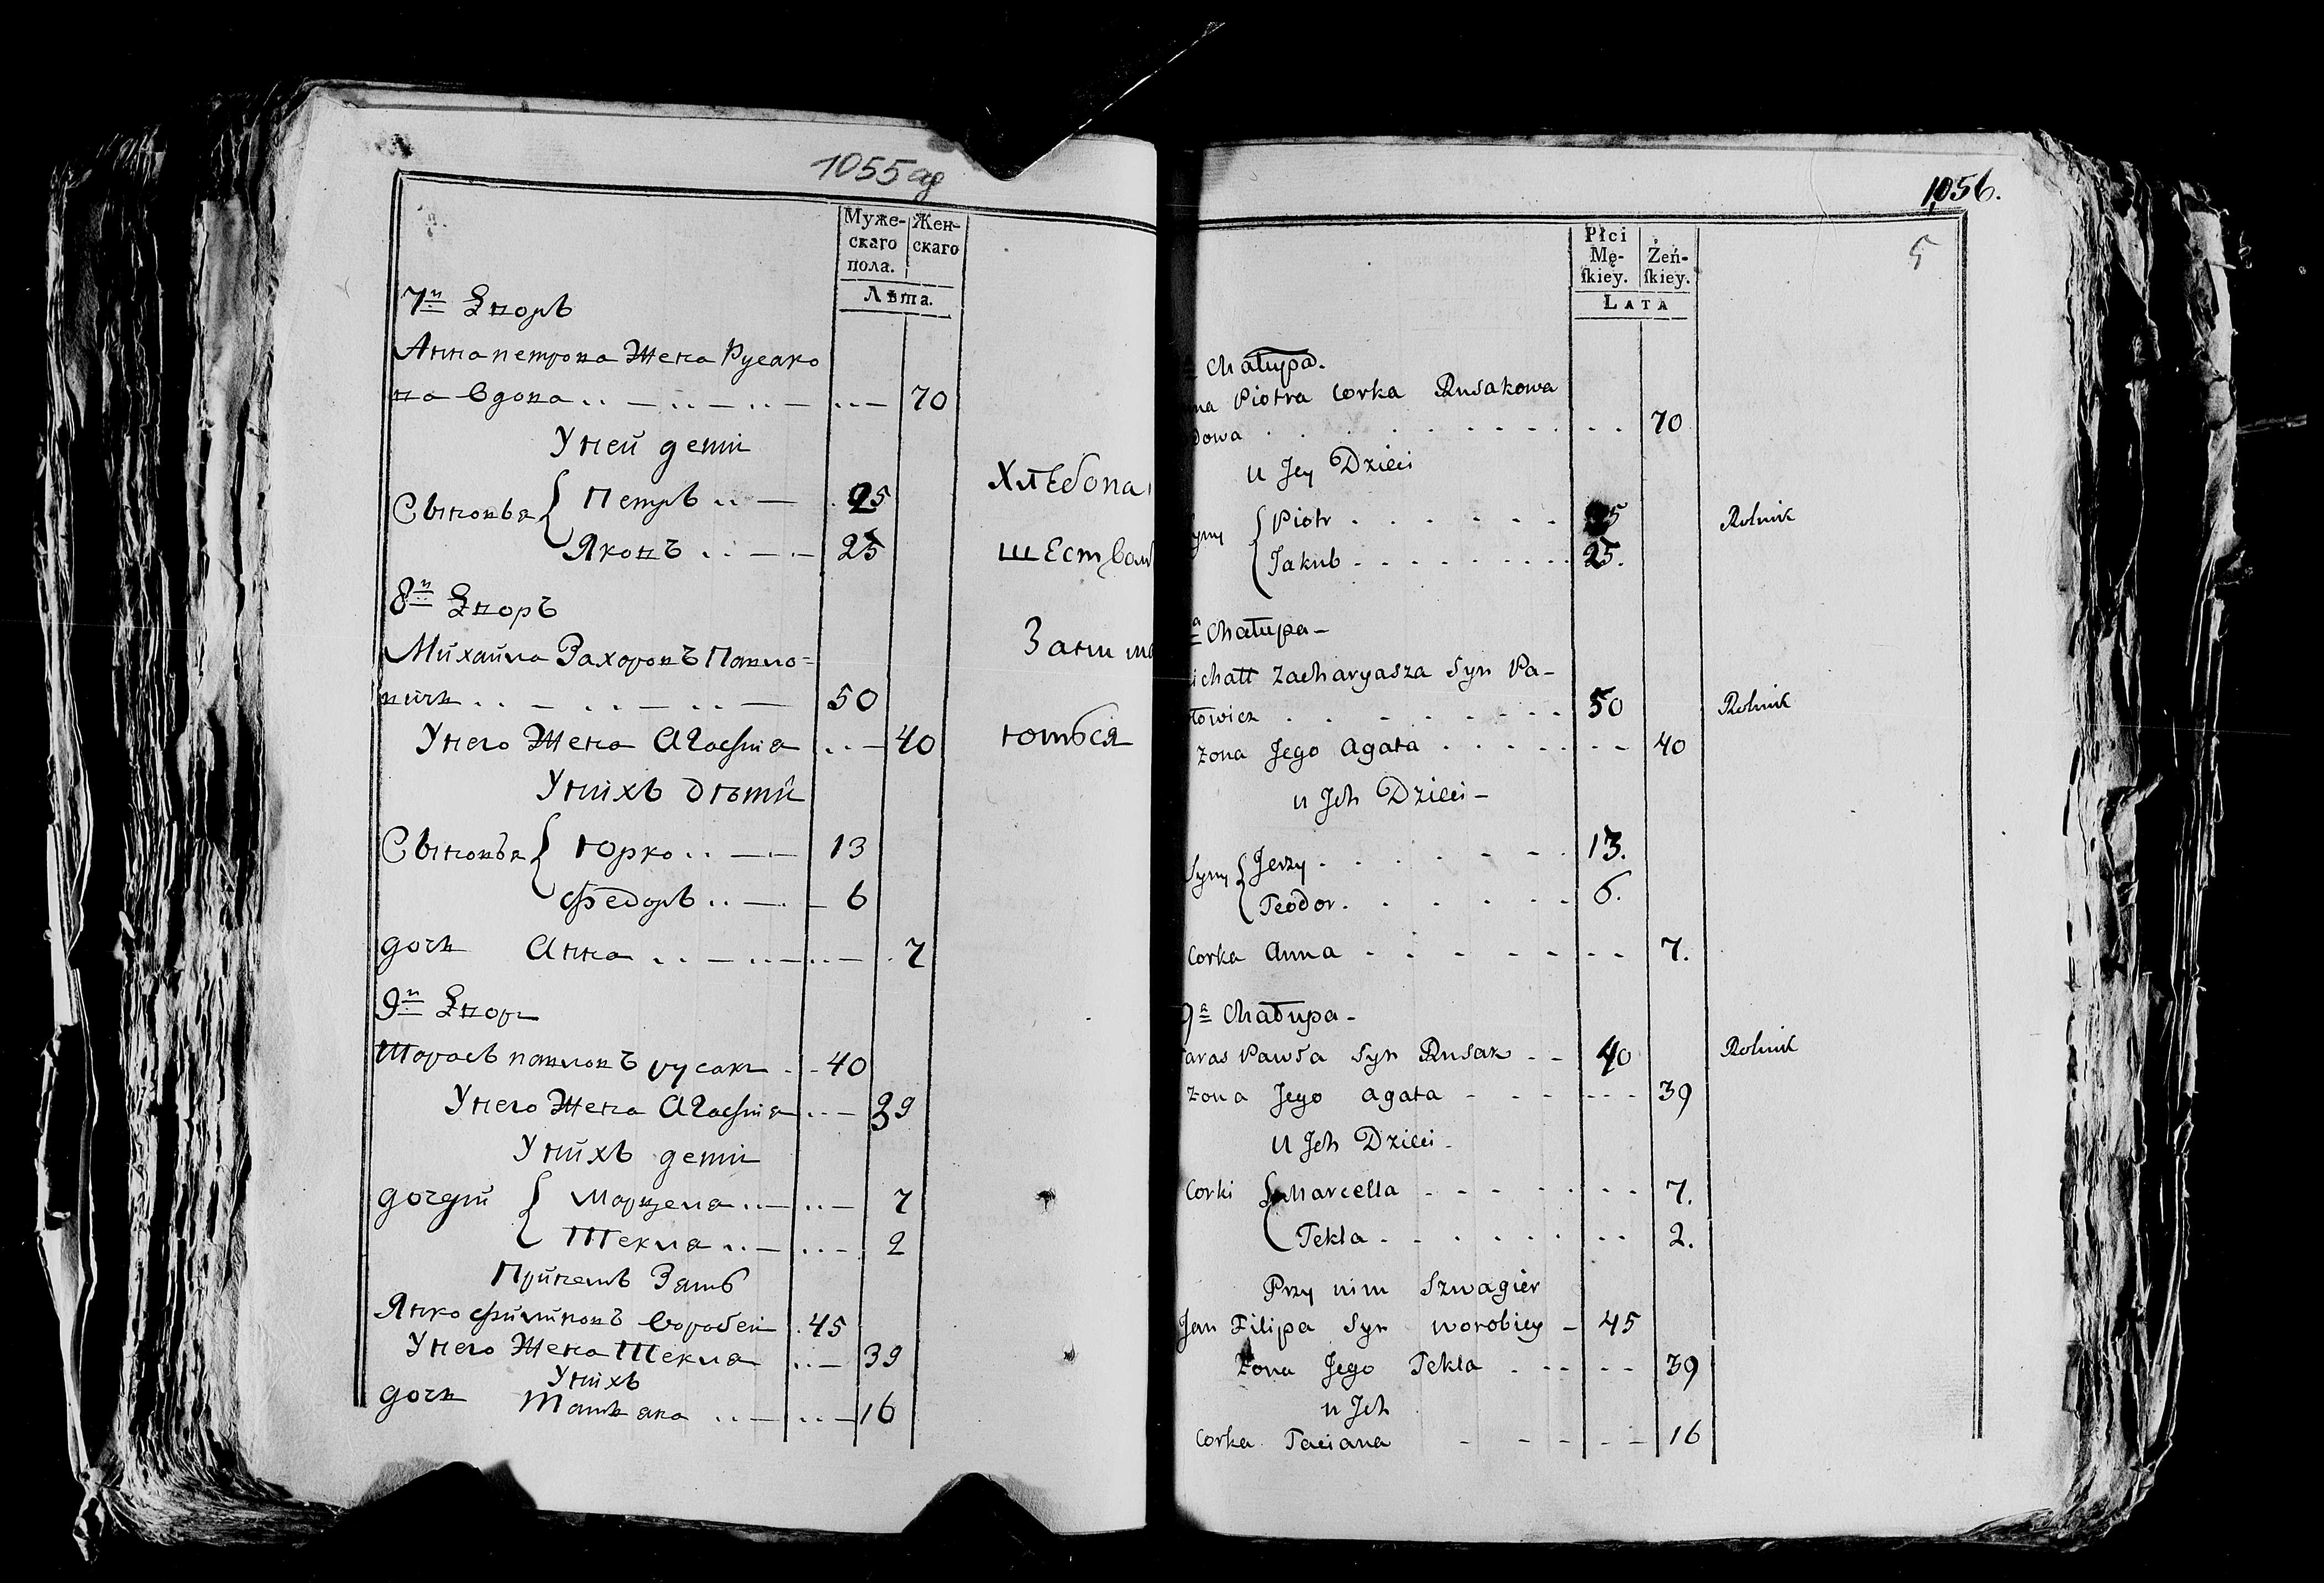 1055 ag
Муже-
скаго
пола.
Жен-
скаго
Лѣта.
7й Дворъ
Анна петрова Жена Русако
ва вдова 70
У ней дети
Сыновья { Петръ 25
Яковъ 25
8й Дворъ
Михайла Захоровъ Павло=
вичь 50
У него Жена Агафия 40
У нихъ дѣти
Сыновья { Юрко 13
Федоръ 6
дочь Анна 7
9й Дворъ
Тарасъ павловъ русакъ 40
У него Жена Агафия 39
У нихъ дети
дочери { Марцеля 7
Текля 2
При немъ Зять
Янко Филиповъ Воробей 45
У него Жена Текля 39
У нихъ
дочь Татьяна 16
Хлѣбопа
шеством
Занима
ются
1056.
5
Płci
Mę-
skiey.
Żeń-
skiey.
Lata
Chałupa.
na Piotra Corka Rusakowa
dowa 70
u Jey Dzieci
yny { Piotr 25 Rolnik
Jakub 25.
a Chałupa-
ichałł Zacharyasza Syn Pa-
łowicz 50 Rolnik
żona Jego Agata 40
u Jch Dzieci-
Syny { Jerzy 13.
Teodor 6.
Corka Anna 7.
9a Chałupa-
aras Pawła Syn Rusak 40 Rolnik
żona Jego Agata 39
u Jch Dzieci-
Corki { Marcella 7.
Tekla 2.
Przy nim Szwagier
Jan Filipa Syn Worobiey 45
żona Jego Tekla 39
u Jch
Corka Taciana 16